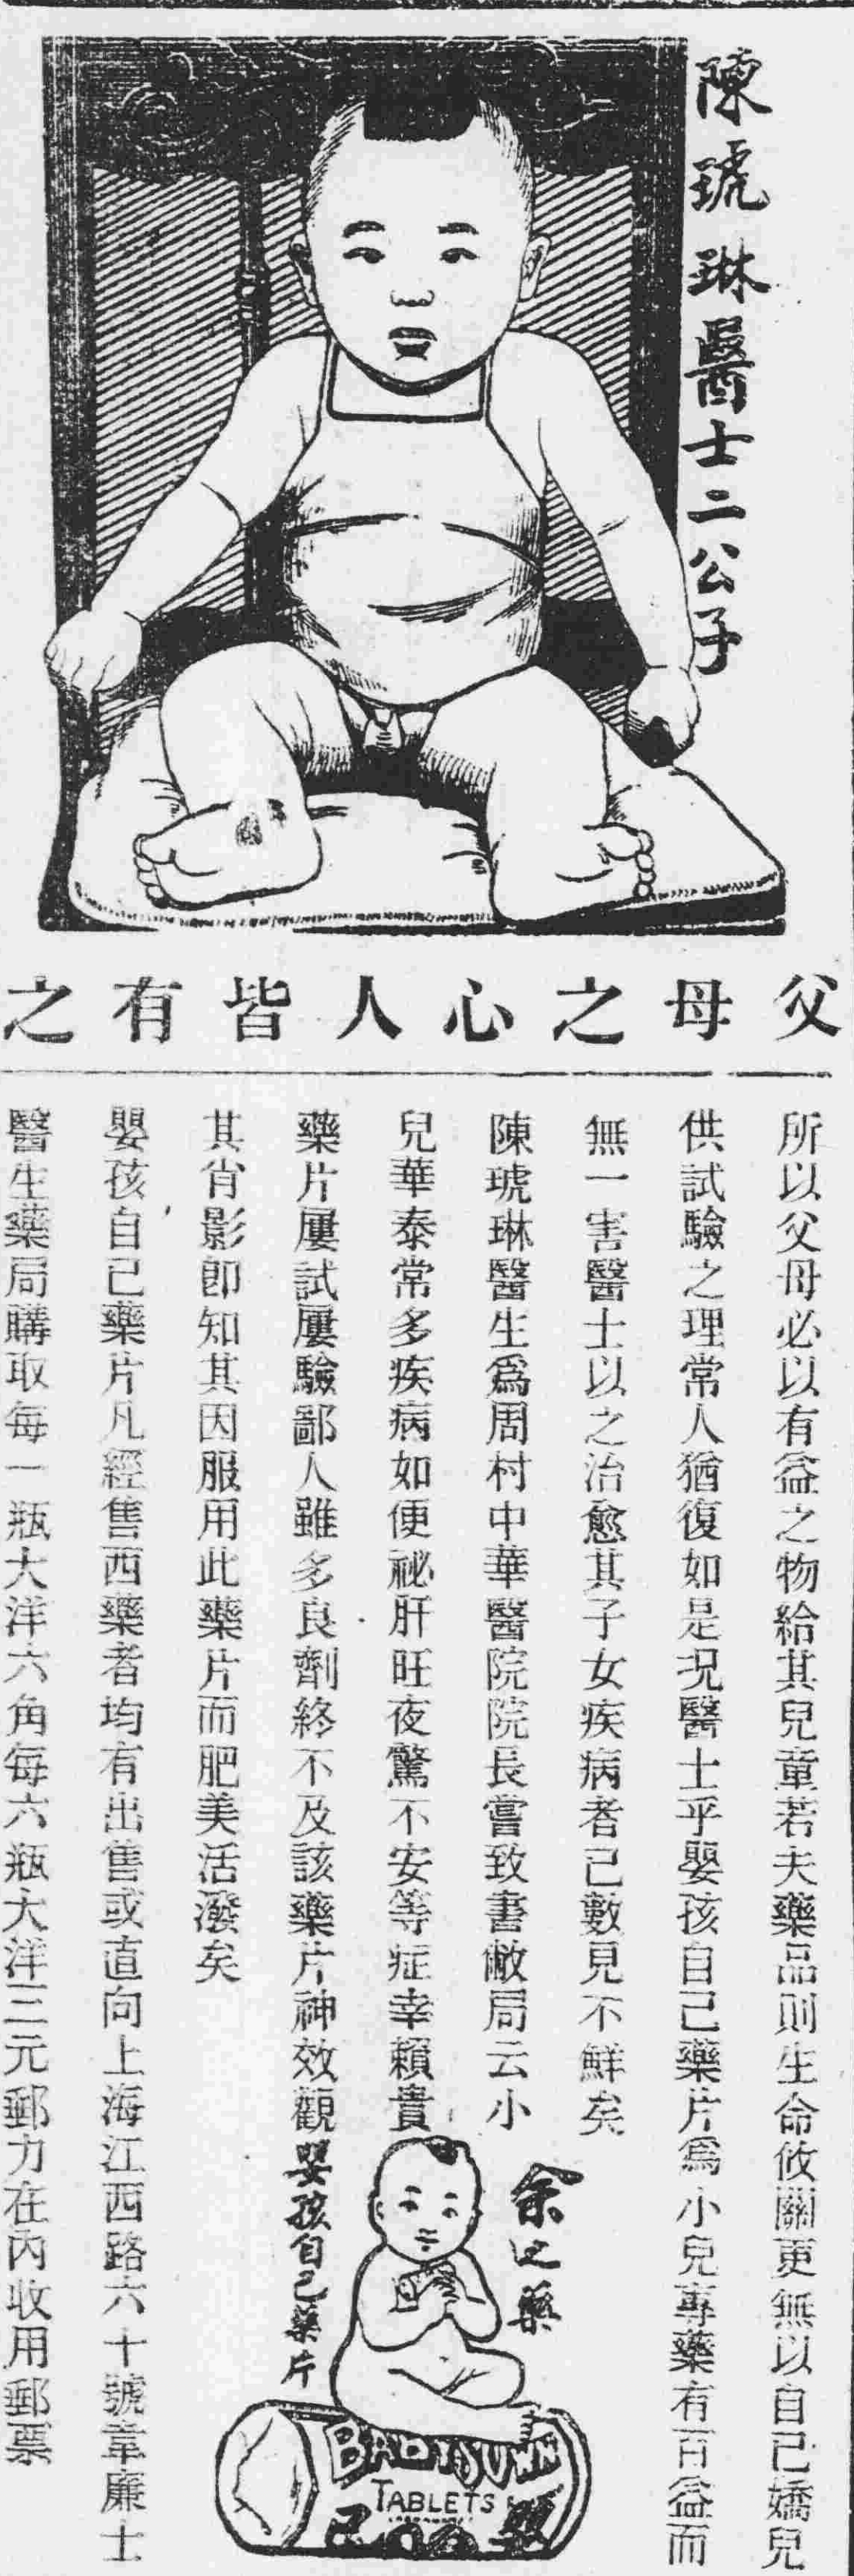 陳琥琳醫士二公子
父母之心人皆有之
所以父母必以有益之物給其兒童若夫藥品則生命攸關更無以自己嬌兒
供試驗之理常人猶復如是况醫士乎嬰孩自己藥片爲小兒專藥有百益而
無一害醫士以之治愈其子女疾病者已數見不鮮矣
陳琥琳醫生爲周村中華醫院院長嘗致書敝局云小
兒華泰常多疾病如便祕肝旺夜驚不安等症幸賴貴
藥片屢試屢驗鄙人雖多良劑終不及該藥片神效觀
其肖影卽知其因服用此藥片而肥美活潑矣
嬰孩自己藥片凡經售西藥者均有出售或直向上海江西路六十號韋廉士
醫生藥局購取每一瓶大洋六角每六瓶大洋三元郵力在內收用郵票
余之藥
嬰孩自己藥片
BABY'S OWN
TABLETS